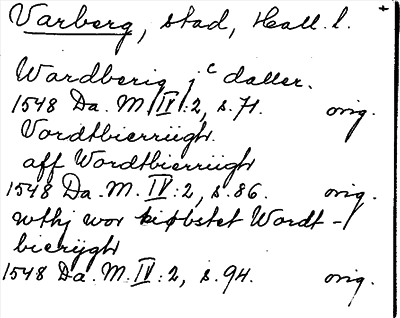 Varberg, stad, Hall. l.
Wardberig jc daller.
1548 Da. M. IV:2, s. 71. orig.
Vordtbierriigh
aff Wordtbierriigh
1548 Da. M. IV:2, s. 86. orig.
wthj wor kiøbstet Wordt-
bierijgh
1548 Da. M. IV:2, s. 94. orig.